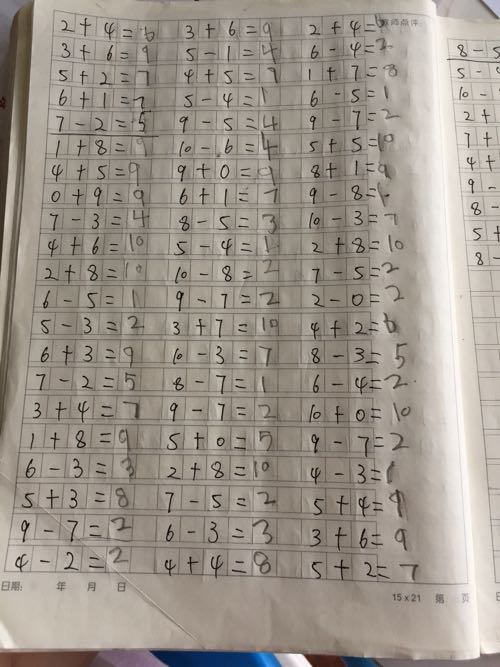 教师点评:
2+4=6 3+6=9 2+4=6
3+6=9 5-1=4 6-4=2
5+2=7 4+5=7 1+7=8
6+1=7 5-4=1 6-5=1
7-2=5 9-5=4 9-7=2
1+8=9 10-6=4 5+5=10
4+5=9 9+0=9 8+1=9
0+9=9 6+1=7 9-8=1
7-3=4 8-5=3 10-3=7
4+6=10 5-4=1 2+8=10
2+8=10 10-8=2 7-5=2
6-5=1 9-7=2 2-0=2
5-3=2 3+7=10 4+2=6
6+3=9 10-3=7 8-3=5
7-2=5 8-7=1 6-4=2
3+4=7 9-7=2 10+0=10
1+8=9 5+0=5 9-7=2
6-3=3 2+8=10 4-3=1
5+3=8 7-5=2 5+4=9
9-7=2 6-3=3 3+6=9
4-2=2 4+4=8 5+2=7
日期: 年 月 日 15x21 第 页
8-5
5-
10-
2+
7+
4+
9-
8-
5+
8-